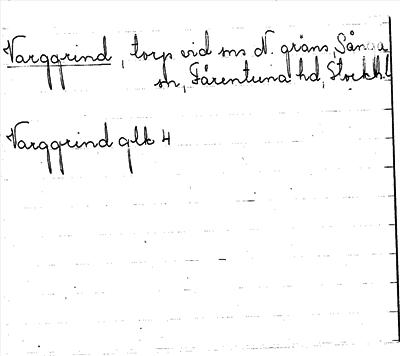 Varggrind, torp vid sns N. gräns, Sånga
sn, Färentuna hd, Stockh.l
Varggrind glk 4